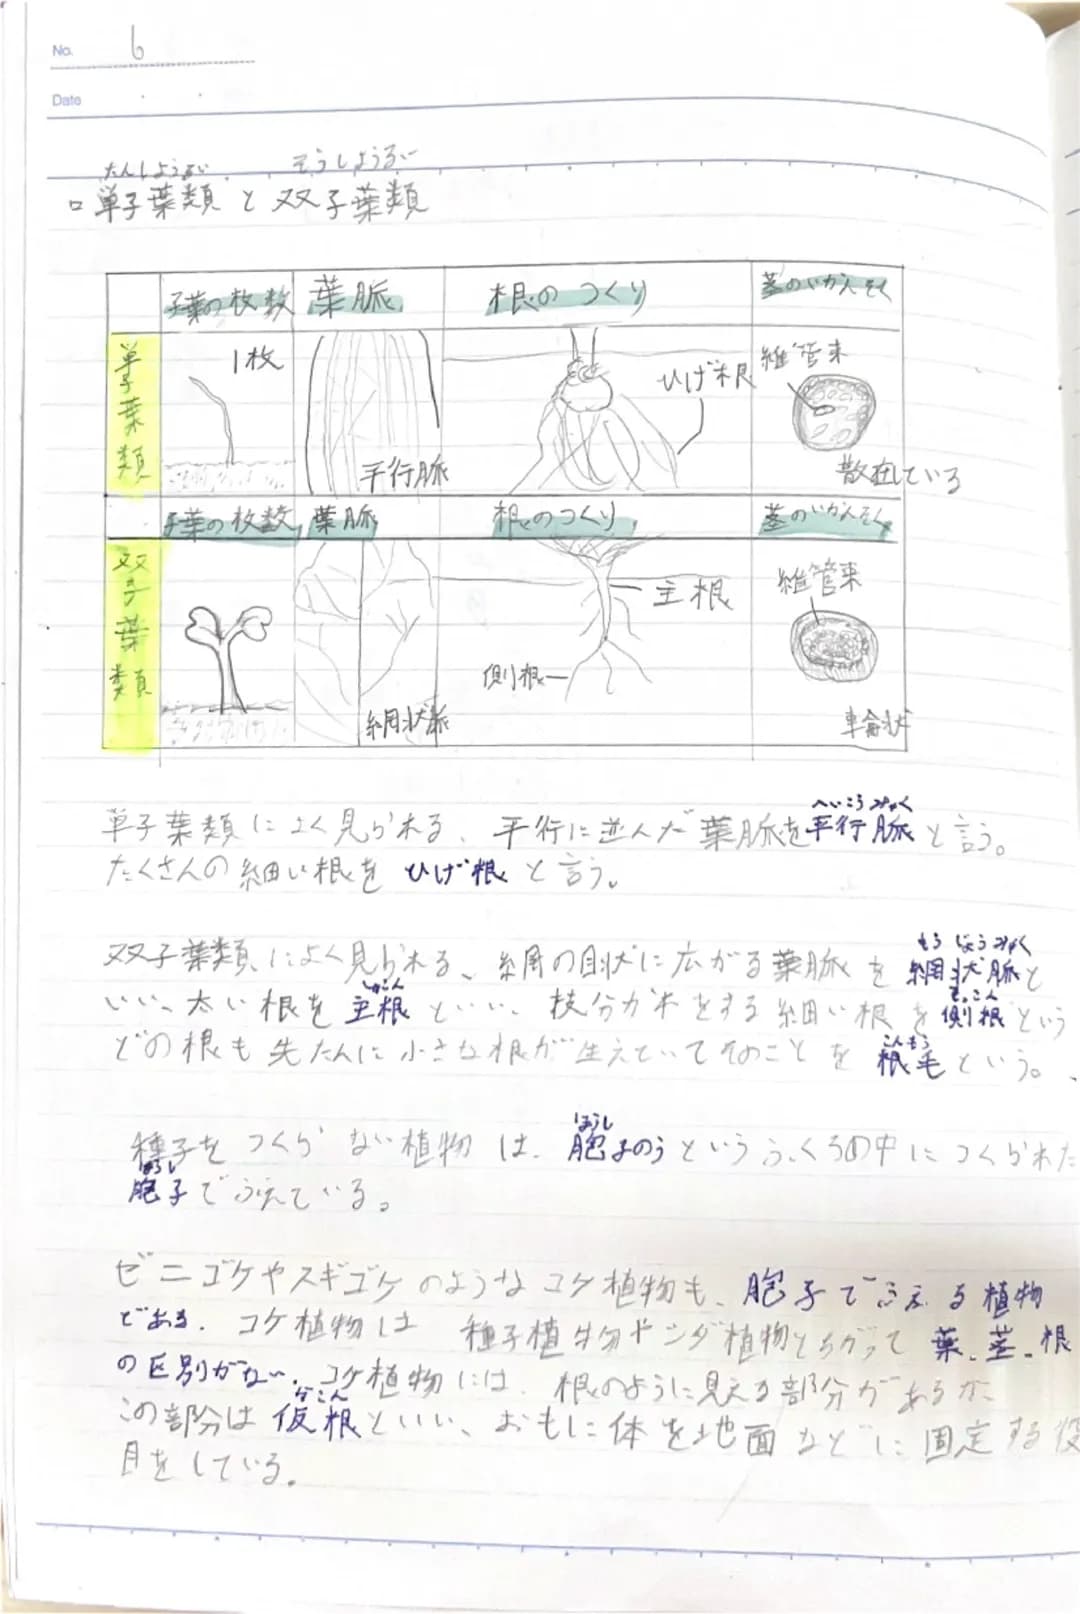 No. 6
Date
たんしようるい そうしようるい
□ 単子葉類 と 双子葉類
子葉の枚数 葉脈 根のつくり 茎のいかんそく
単子葉類 1枚 平行脈 ひげ根 維管束 散在している
子葉の枚数 葉脈 根のつくり 茎のいかんそく
双子葉類 網状脈 主根 側根 維管束 輪状
へいこうみゃく
単子葉類によく見られる、平行に並んだ葉脈を平行脈と言う。
たくさんの細い根を ひげ根 と言う。
もうじょうみゃく
双子葉類によく見られる、網の目状に広がる葉脈を網状脈と
しゅこん そっこん
いい、太い根を主根といい、枝分かれをする細い根を側根という
こんもう
どの根も先たんに小さな根が生えていてそのことを根毛という。
ほうし
種子をつくらない植物は、胞子のうというふくろの中につくられた
ほうし
胞子でふえている。
ゼニゴケやスギゴケのようなコケ植物も、胞子でふえる植物
である。コケ植物は種子植物やシダ植物とちがって葉、茎、根
の区別がない。コケ植物には、根のように見える部分があるが、
かこん
この部分は仮根といい、おもに体を地面などに固定する役
目をしている。